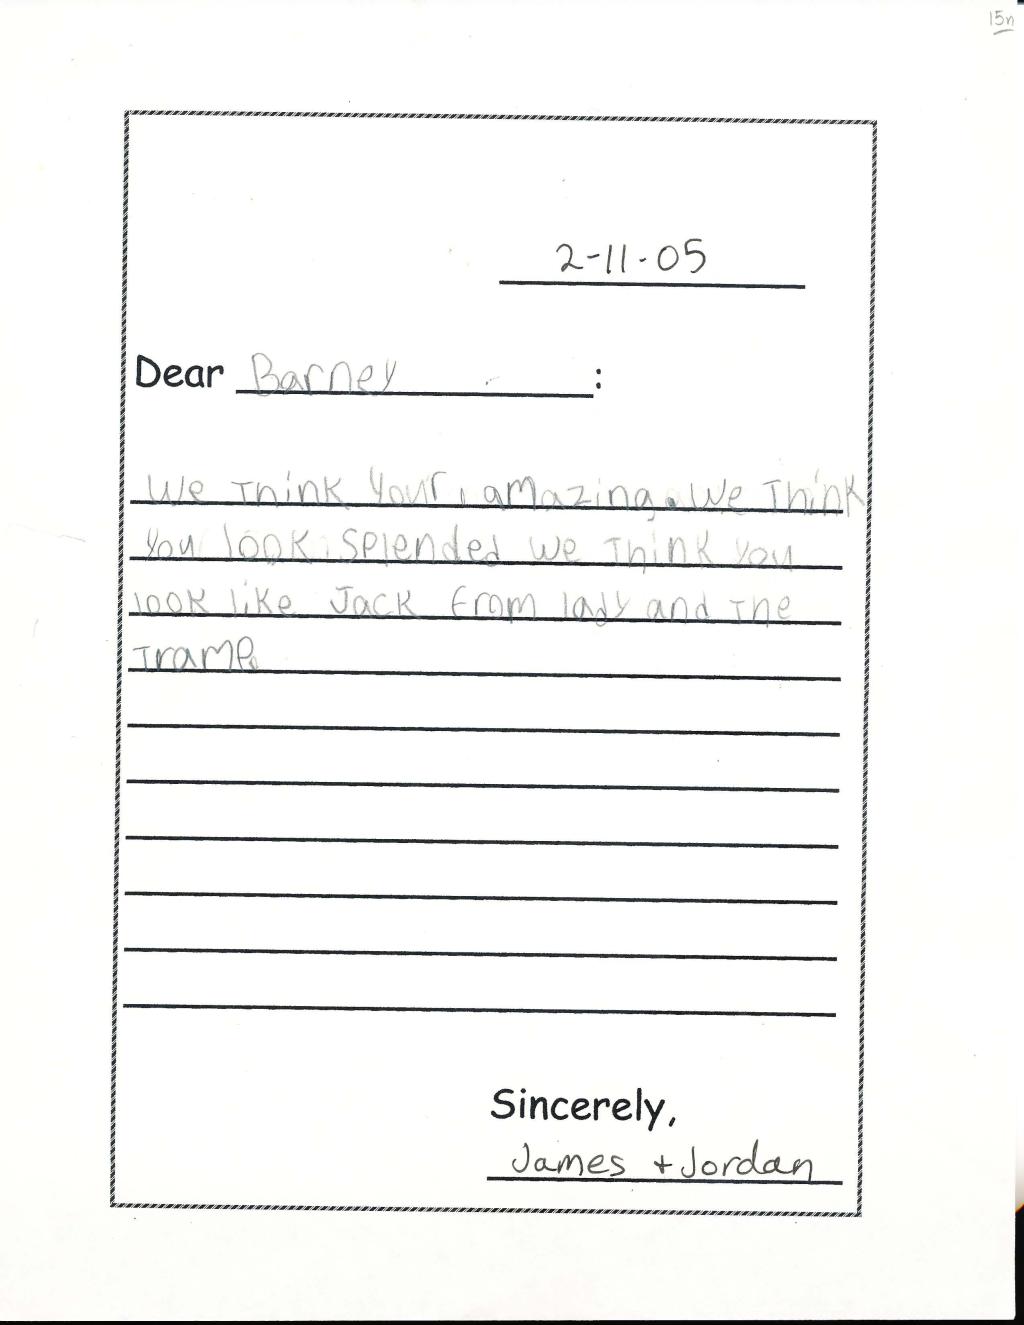 15n
2-11-05
Dear Barney :
We Think your amazing. We Think
you look Splended we Think you
look like Jack from lady and The
Tramp.
Sincerely,
James + Jordan